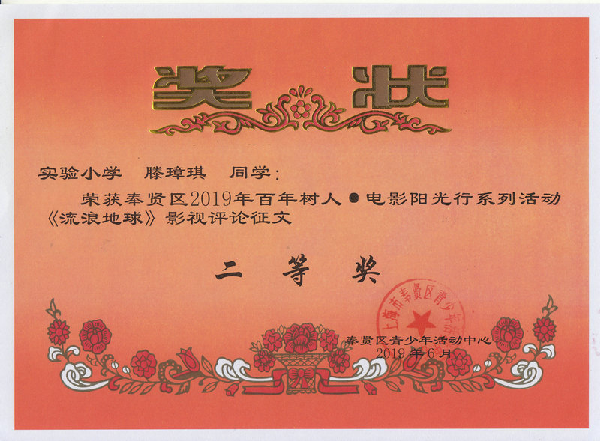 奖 状
实验小学 滕璋琪 同学：
荣获奉贤区2019年百年树人●电影阳光行系列活动
《流浪地球》影视评论征文
二等奖
上海市奉贤区青少年
奉贤区青少年活动中心
2019年6月